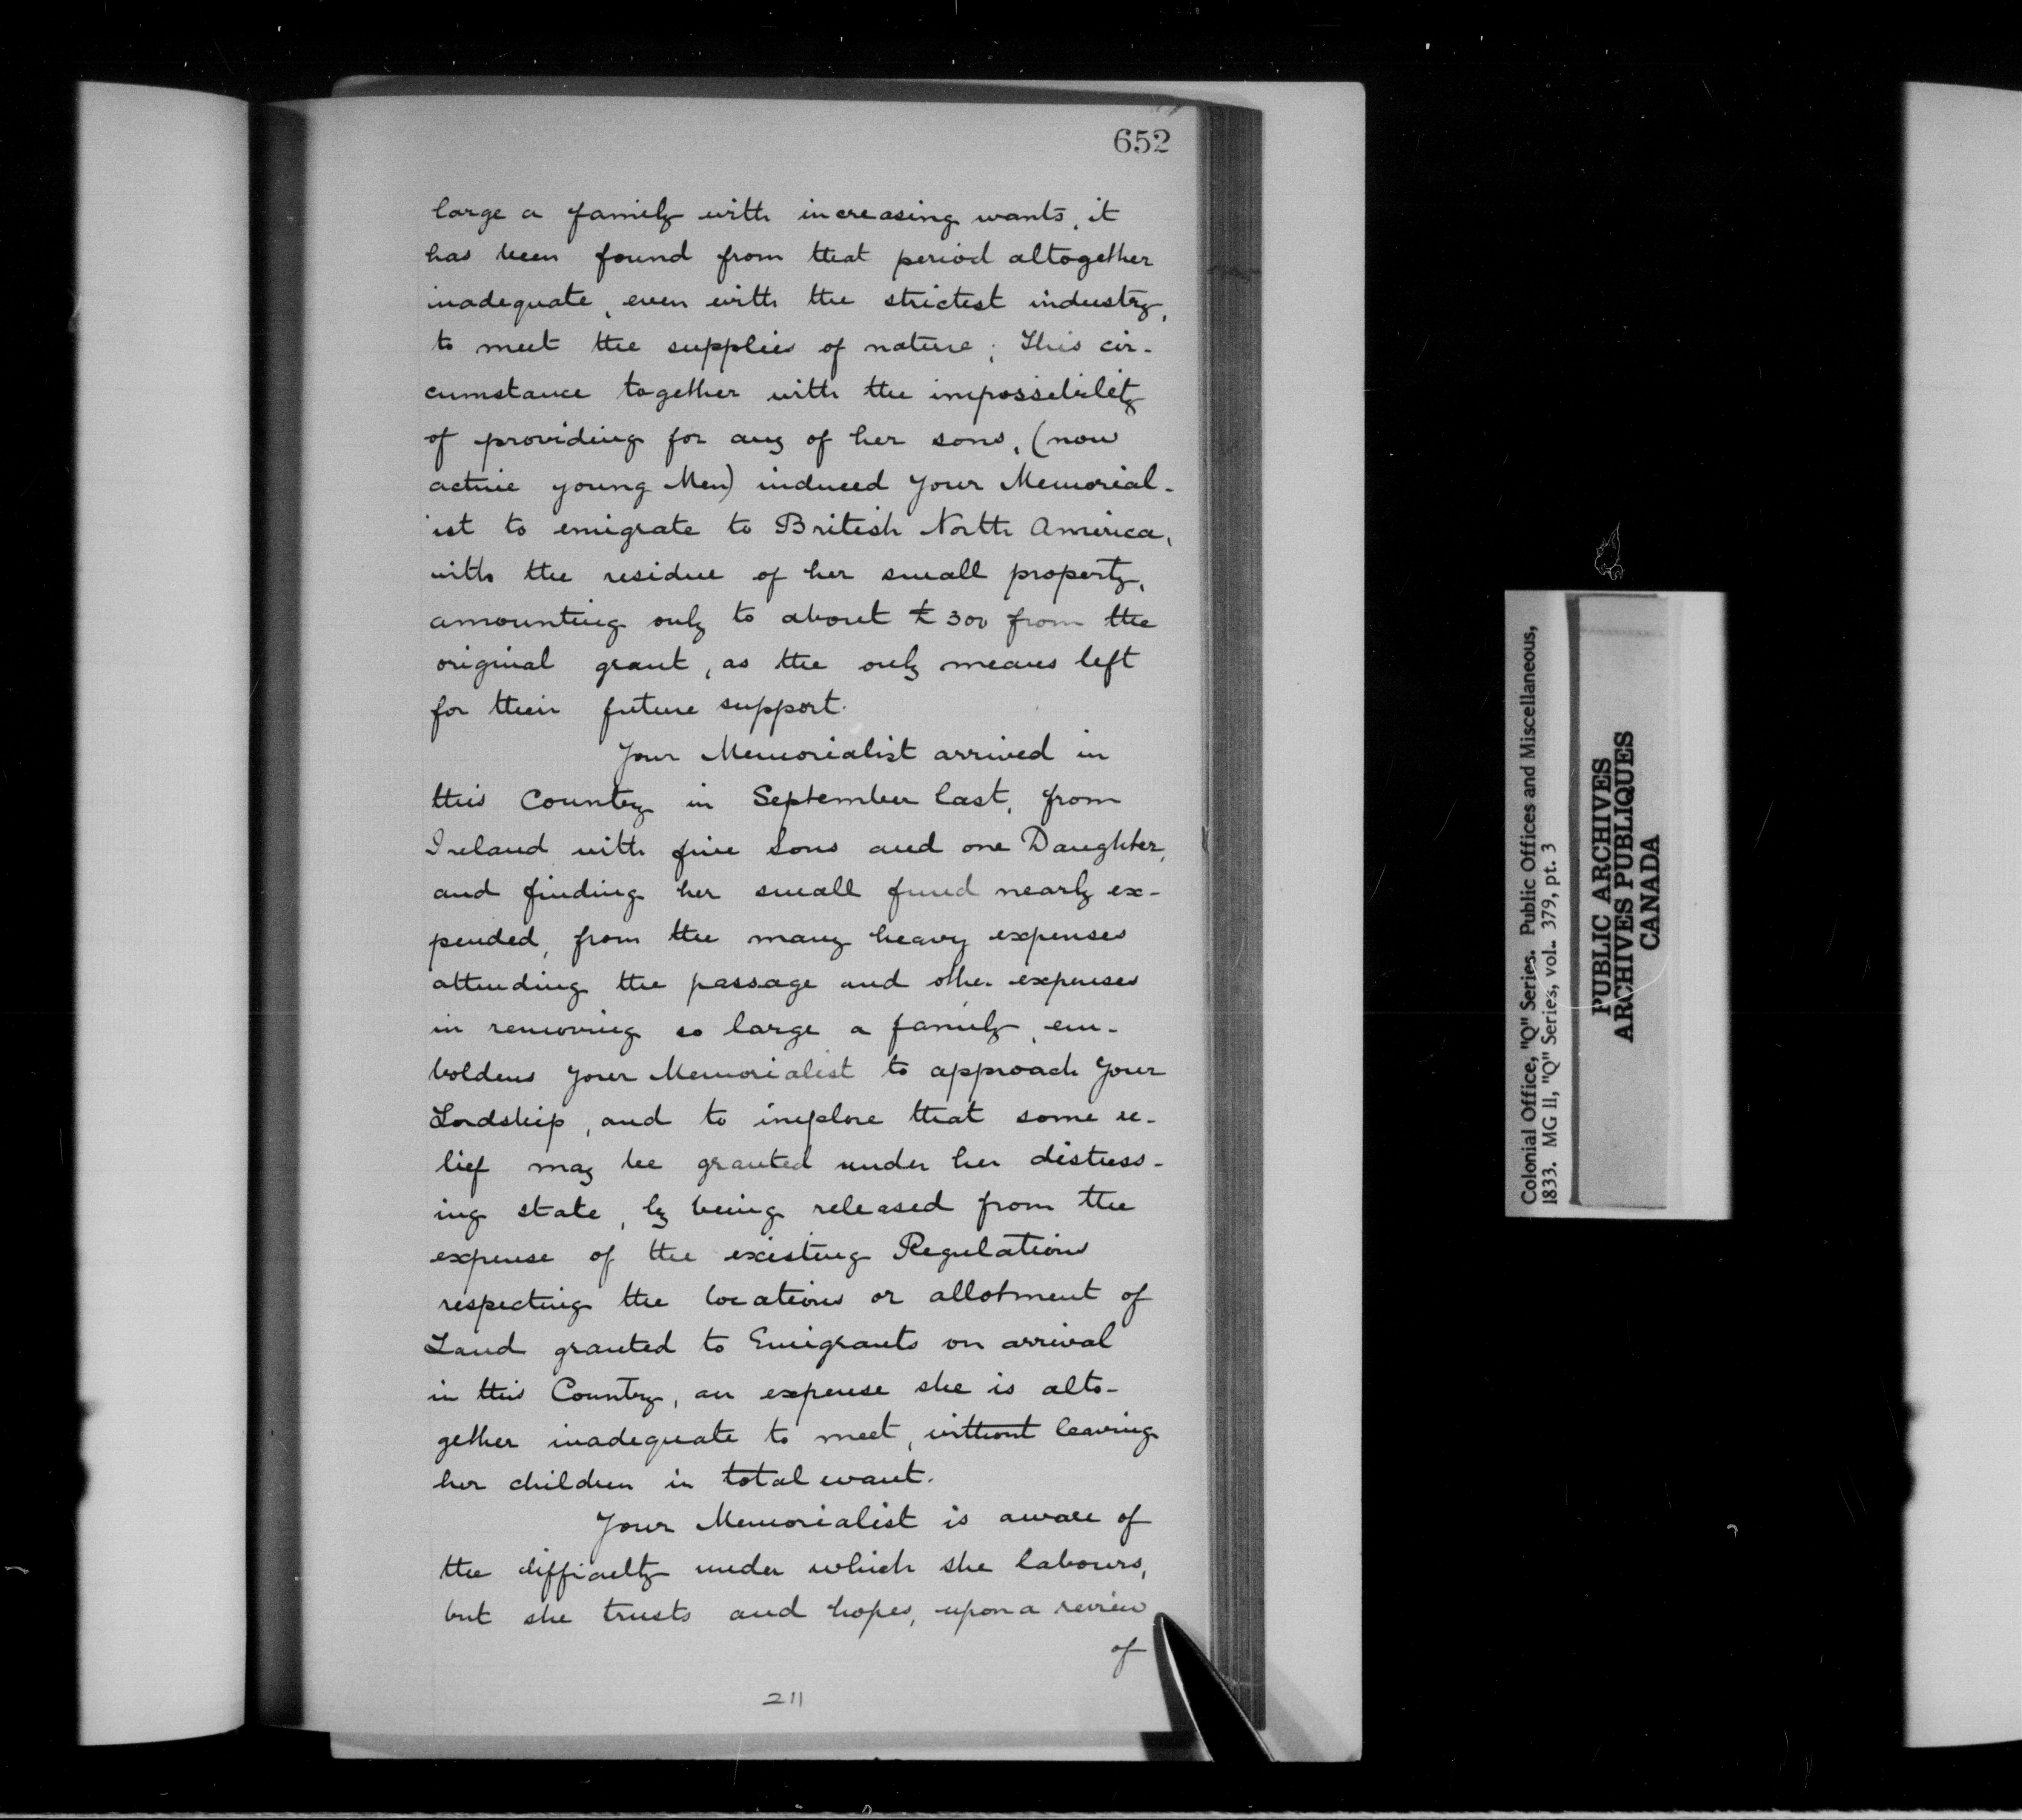 652
large a family with increasing wants, it
has been found from that period altogether
inadequate, even with the strictest industry,
to meet the supplies of nature; This cir-
cumstance together with the impossibility
of providing for any of her sons, (now
active young Men) induced your Memorial-
ist to emigrate to British North America,
with the residue of her small property,
amounting only to about £300 from the
original grant, as the only means left
for their future support.
Your Memorialist arrived in
this Country in September last, from
Ireland with five Sons and one Daughter,
and finding her small fund nearly ex-
pended, from the many heavy expenses
attending the passage and other expenses
in removing so large a family, em-
boldens your Memorialist to approach Your
Lordship, and to implore that some re-
lief may be granted under her distress-
ing state, by being released from the
expense of the existing Regulations
respecting the locations or allotment of
Land granted to Emigrants on arrival
in this Country, an expense she is alto-
gether inadequate to meet, without leaving
her children in total want.
Your Memorialist is aware of
the difficulty under which she labours,
but she trusts and hopes, upon a review
of
211
Colonial Office, "Q" Series. Public Offices and Miscellaneous,
1833. MG 11, "Q" Series, vol. 379, pt. 3
PUBLIC ARCHIVES
ARCHIVES PUBLIQUES
CANADA